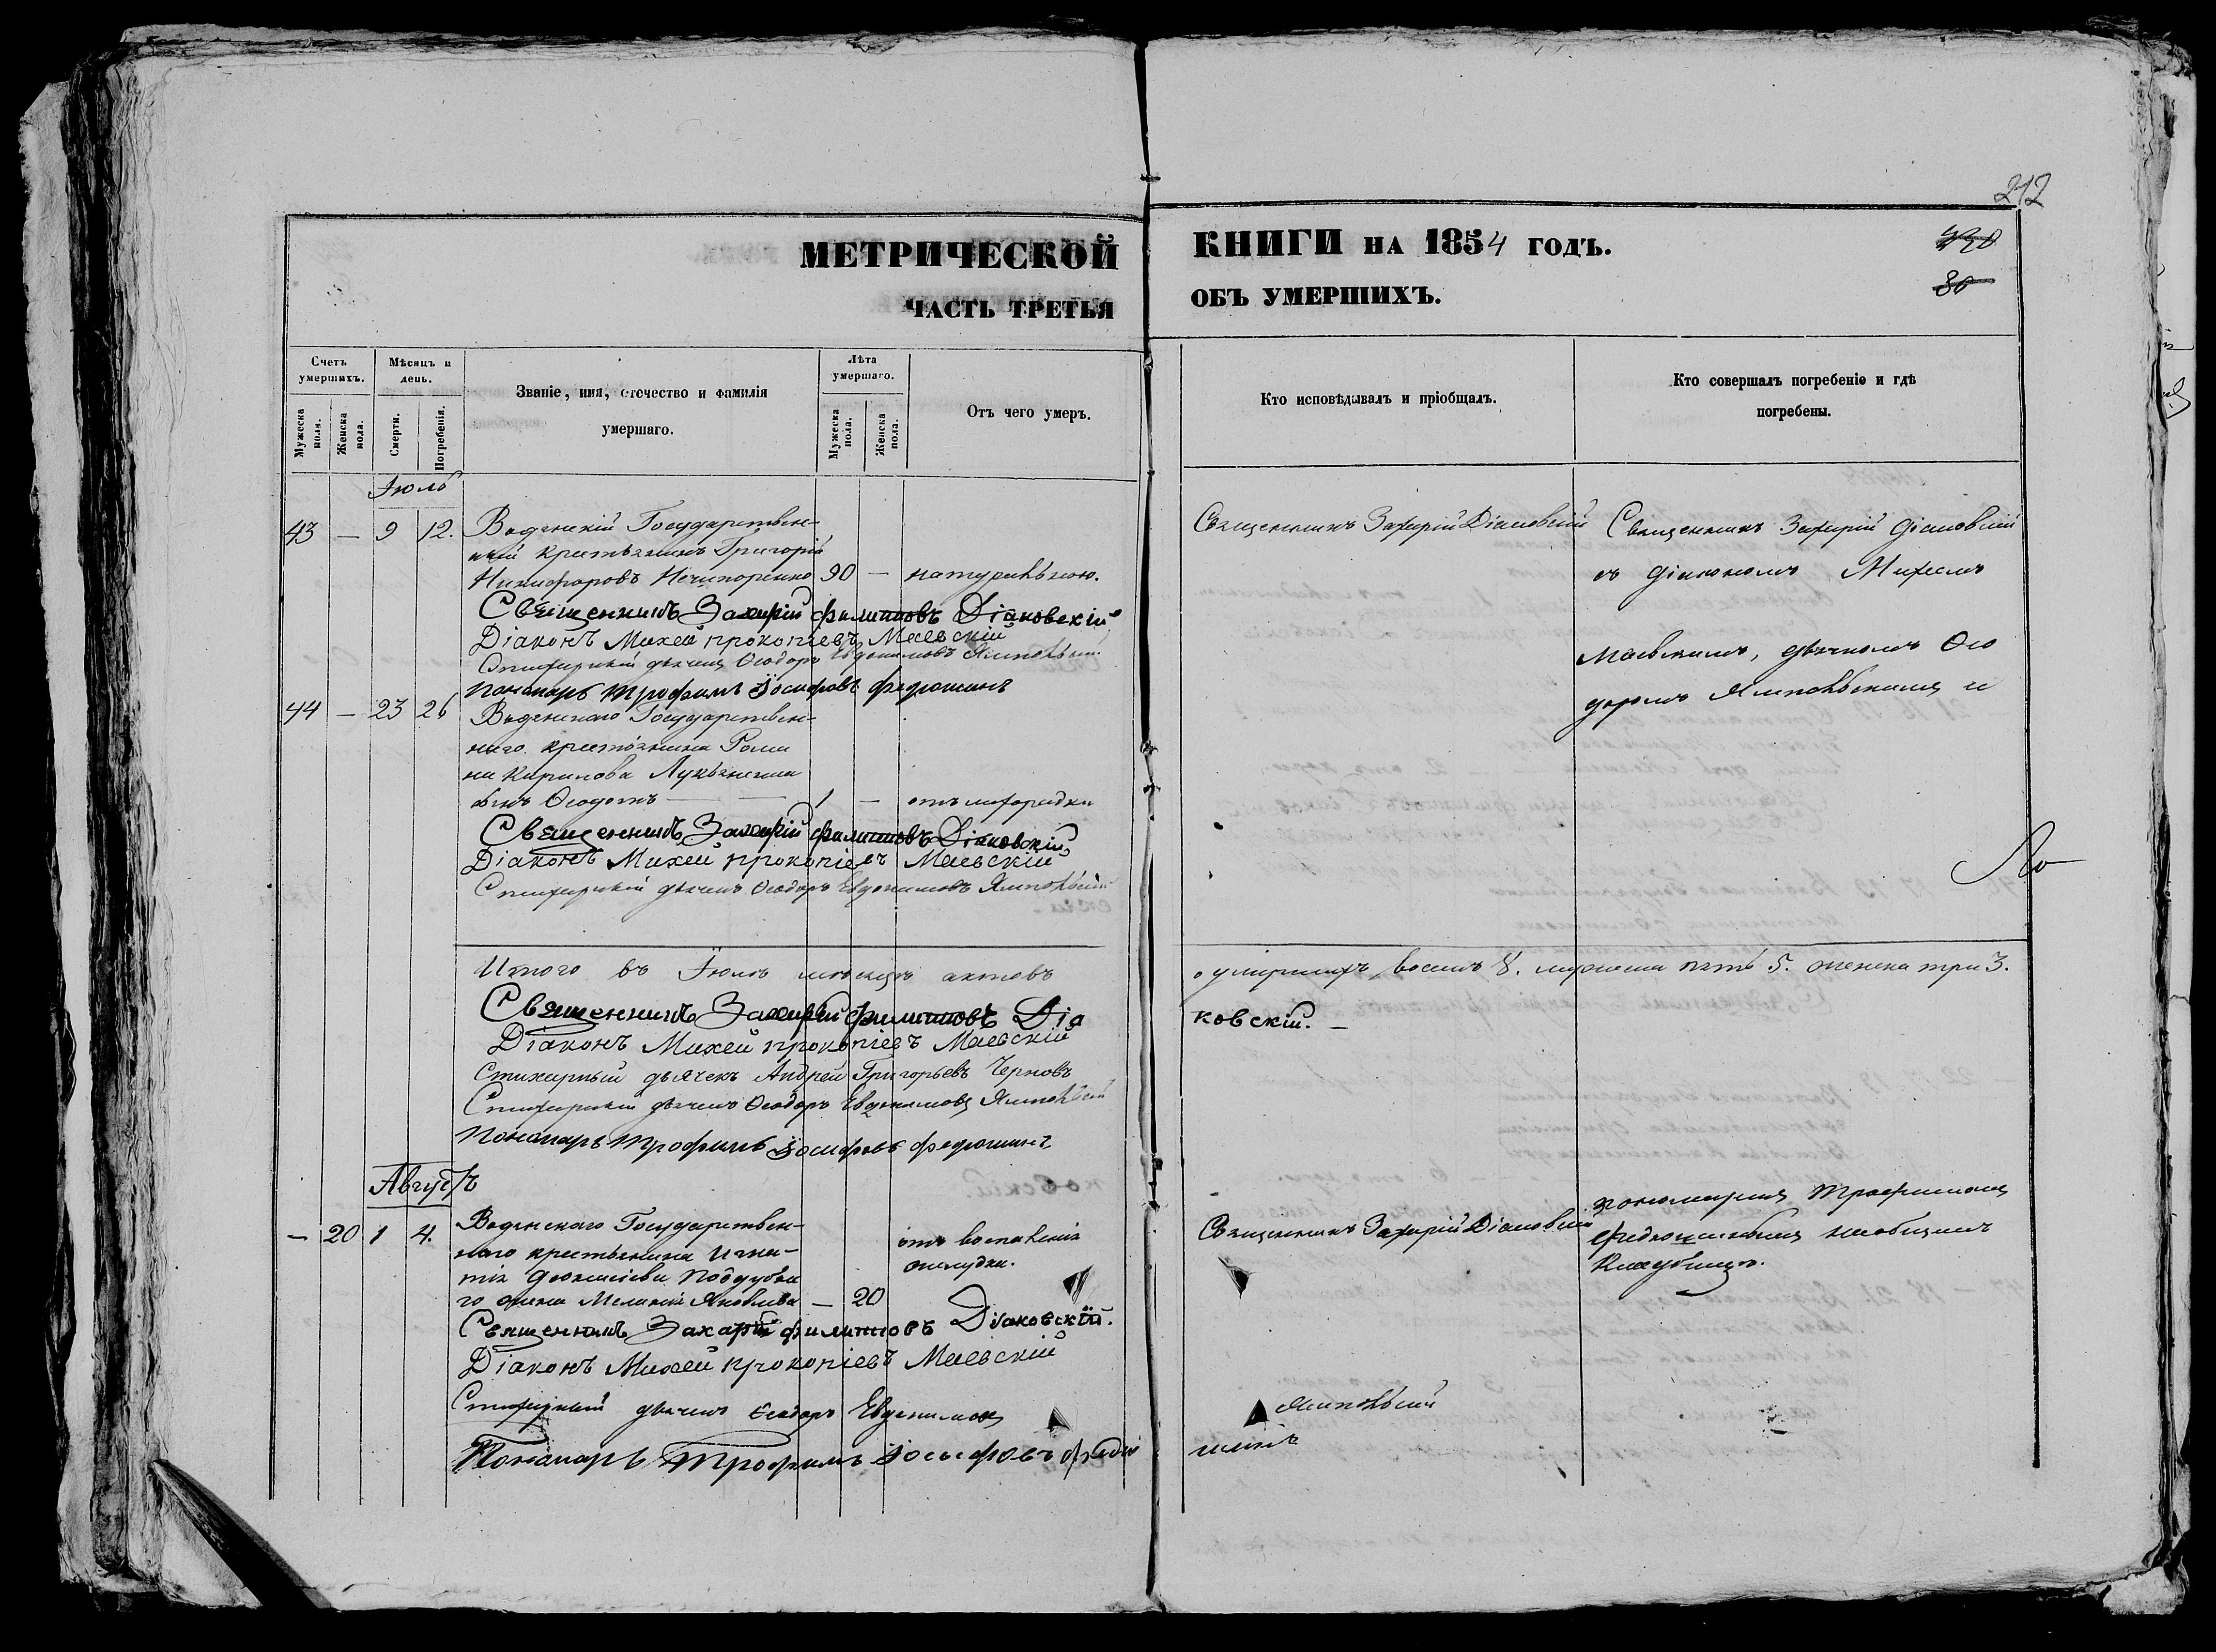 212
МЕТРИЧЕСКОЙ КНИГИ НА 1854 ГОДЪ.
ЧАСТЬ ТРЕТЬЯ ОБЪ УМЕРШИХЪ.
80
Счетъ умершихъ.
Мѣсяцъ и день.
Званіе, имя, отечество и фамилія умершаго.
Лѣта умершаго.
Отъ чего умеръ.
Кто исповѣдывалъ и пріобщалъ.
Кто совершалъ погребеніе и гдѣ погребены.
Мужеска пола.
Женска пола.
Смерти.
Погребенія.
Мужеска пола.
Женска пола.
Іюль
43 — 9 12. Водянскій Государствен-
ный крестьянинъ Григорій
Никифоровъ Нечипоренко 90 — натуральною.
Священникъ Захарій Діаковскій
Священникъ Захарій Діаковскій
съ діакономъ Михеемъ
Маевскимъ, дьячкомъ Ѳео
доромъ Ямпольскимъ и
Священникъ Захарій Филиповъ Діаковскій
Діаконъ Михей Прокопіевъ Маевскій
Стихарный дьячекъ Ѳеодоръ Евдокимовъ Ямпольскій
Пономарь Трофимъ Іосифовъ Федюшинъ
44 — 23 26 Водянскаго Государствен-
наго крестьянина Рома
на Кирилова Лукьяненка
сынъ Ѳеодотъ — 1 — отъ лихорадки
Священникъ Захарій Филиповъ Діаковскій
Діаконъ Михей Прокопіевъ Маевскій
Стихарный дьячекъ Ѳеодоръ Евдокимовъ Ямпольскій
Итого въ Іюлѣ мѣсяцѣ актовъ о умершихъ восемь 8. мужеска пять 5. женска три 3.
Священникъ Захарій Филиповъ Діаковскій. —
Діаконъ Михей Прокопіевъ Маевскій
Стихарный дьячекъ Андрей Григорьевъ Черновъ
Стихарный дьячекъ Ѳеодоръ Евдокимовъ Ямпольскій
Пономарь Трофимъ Іосифовъ Федюшинъ
Августъ
— 20 1 4. Водянскаго Государствен-
наго крестьянина Игна-
тія Поддубна
го жена Меланія Яковлева — 20
отъ воспаленія
желудка.
Священникъ Захарій Діаковскій
пономаремъ Трофимомъ
Федюшинымъ на общемъ
Кладбищѣ.
Священникъ Захарій Филиповъ Діаковскій.
Діаконъ Михей Прокопіевъ Маевскій
Стихарный дьячекъ Ѳеодоръ Евдокимовъ Ямпольскій
Пономарь Трофимъ Іосыфовъ Федю шинъ